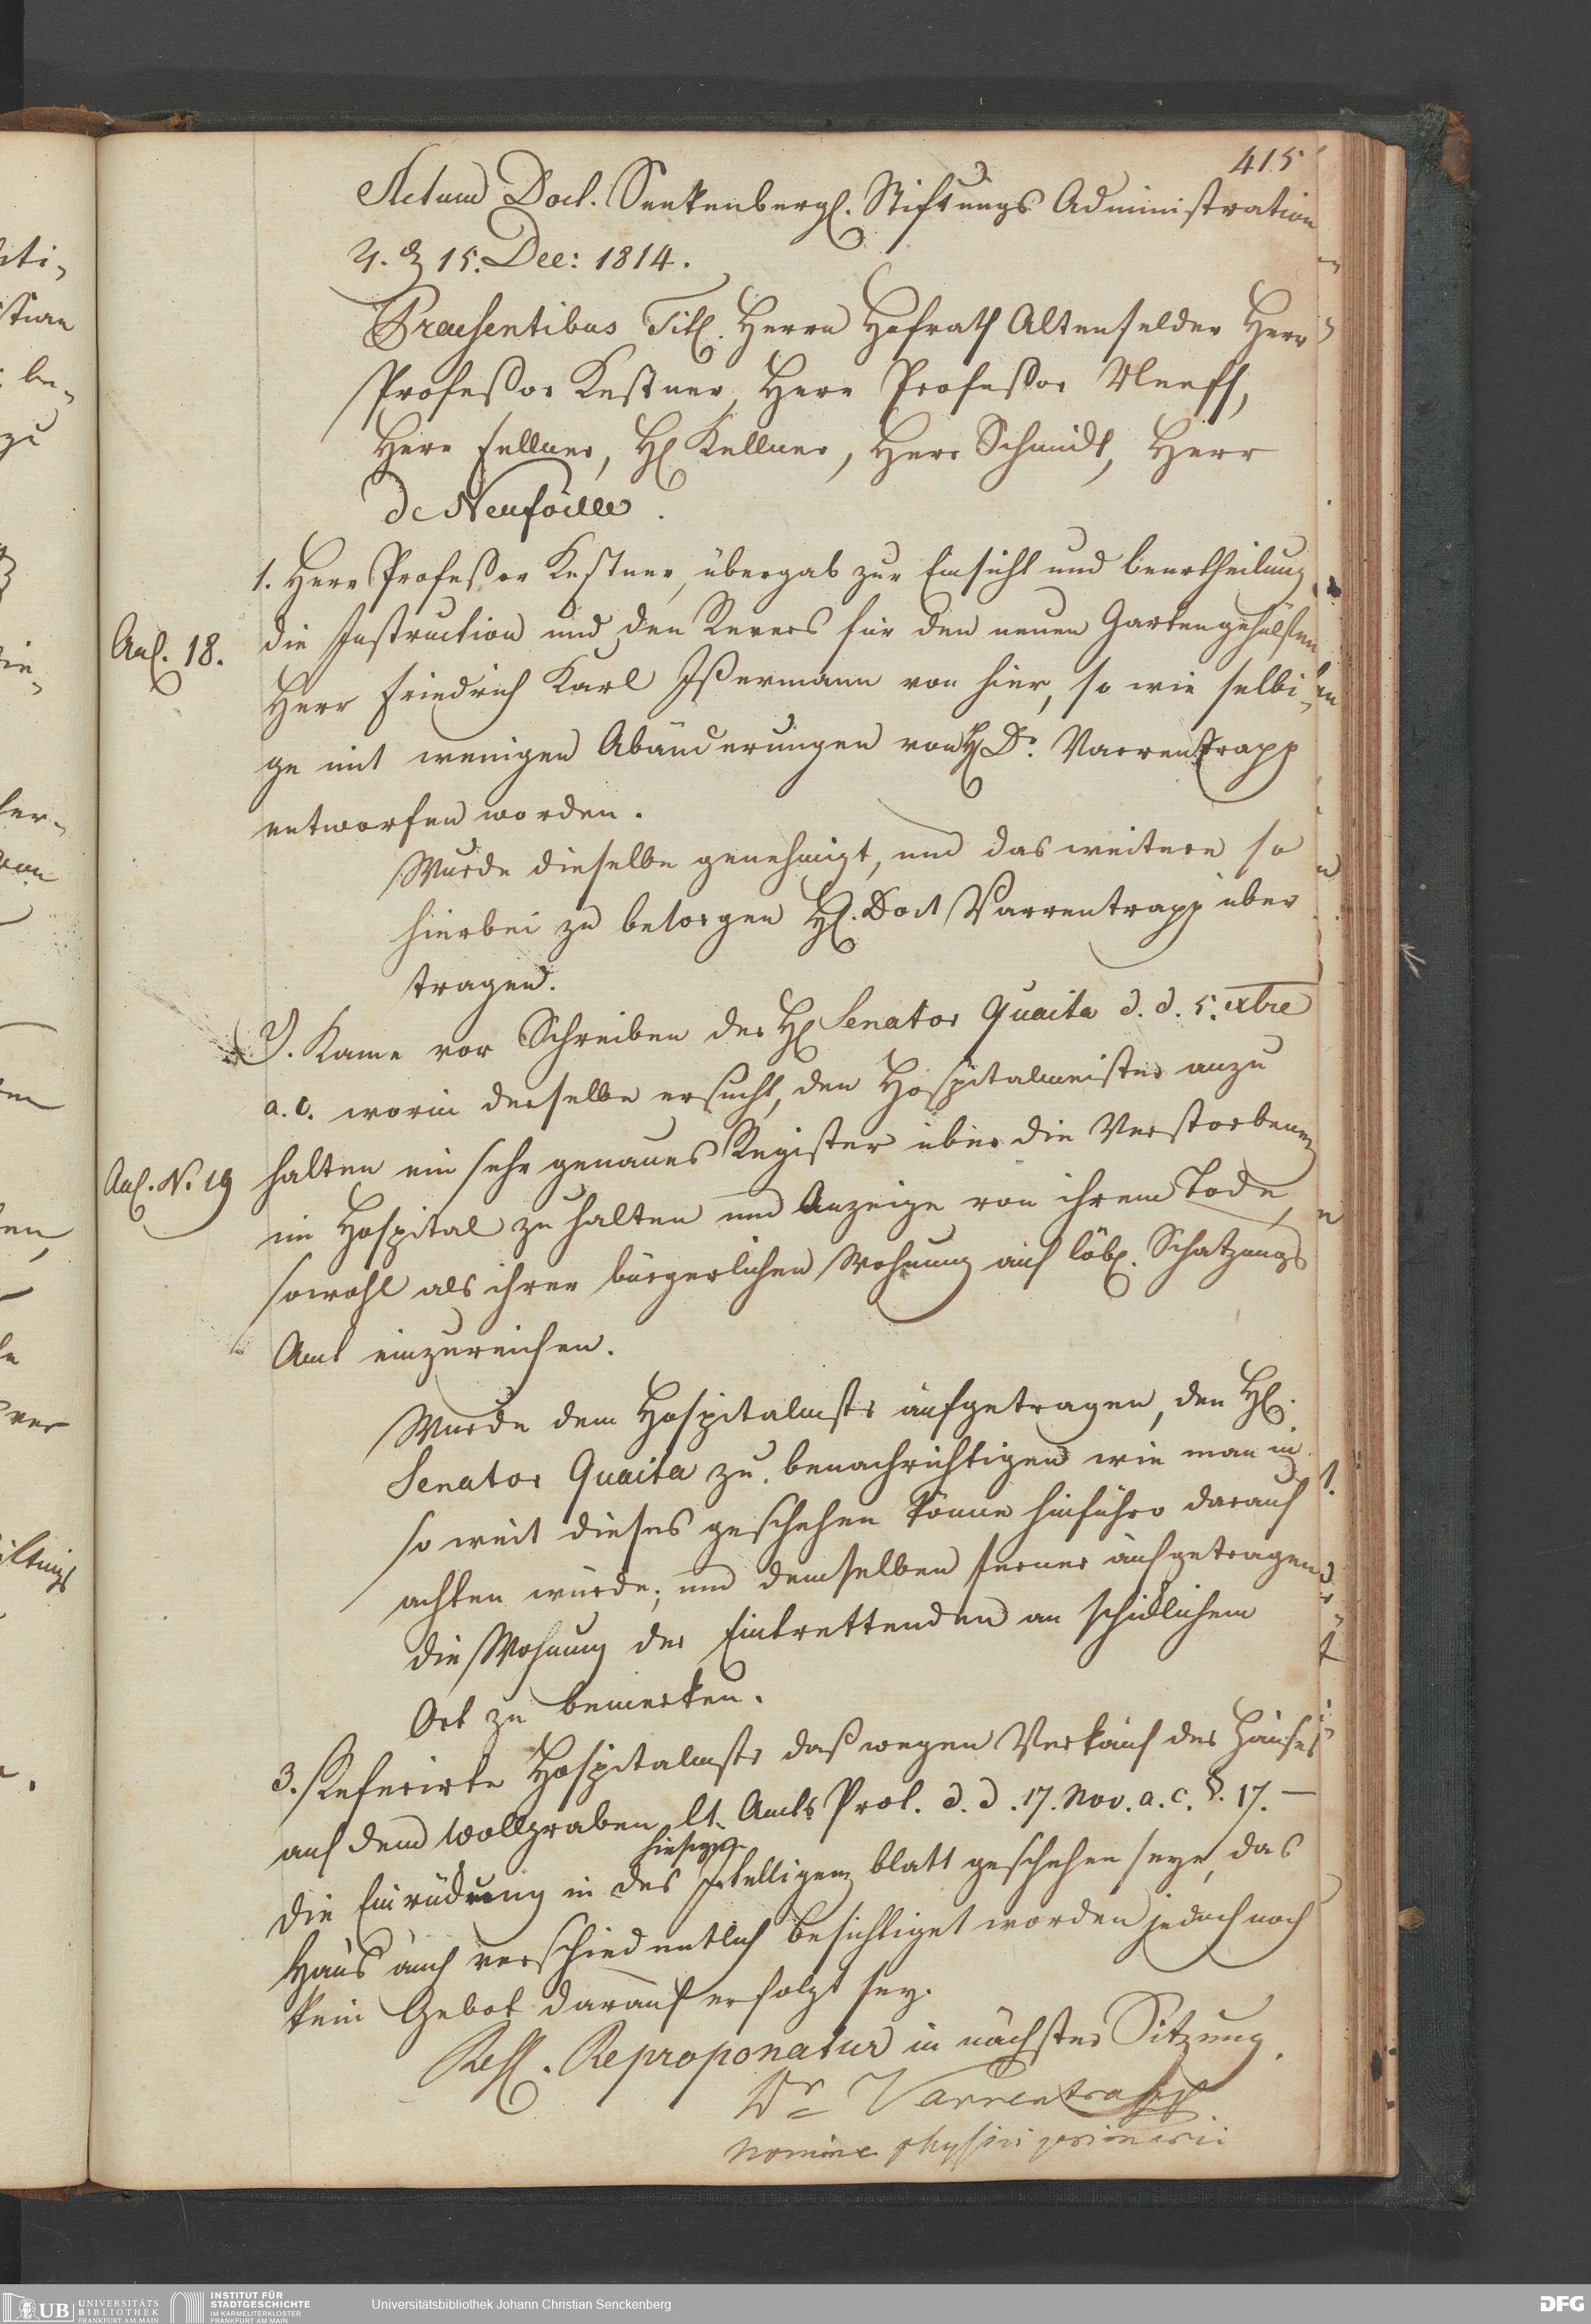 415
Actum Doct. Senkenbergl. Stiftungs Administration
15. Dec: 1814.
Praesentibus Titl. Herrn Hofrath Altenfelder Herr
Professor Kestner, Herr Professor Neeff,
Herr Fellner, Hl Kellner, Herr Schmidt, Herr
de Neufville.
1. Herr Professor Kestner, übergab zur Einsicht und beurtheilung
Anl. 18.
die Instruction und den Revers für den neuen Gartengehülfen
Herr Friedrich Karl Ißermann von hier, so wie selbi-
ge mit wenigen Abänderungen von H Dr. Varrentrapp
entworfen worden.
Wurde dieselbe genehmigt, und das weitere so
hierbei zu besorgen Hl. Doct Varrentrapp über
tragen.
2). Kame vor Schreiben des Hl Senator Quaita d. d. 5. xbre
a. c. worin derselbe ersucht, den Hospitalmeister anzu
Anl. N. 19
halten ein sehr genaues Register über die Verstorbenen
im Hospital zu halten und Anzeige von ihrem Tode,
sowohl als ihrer bürgerlichen Wohnung auf löbl. Schatzungs
Amt einzureichen.
Wurde dem Hospitalmstr aufgetragen, den Hl.
Senator Quaita zu benachrichtigen wie man in
so weit dieses geschehen könne hinführo darauf
achten würde; und demselben ferner aufgetragen
die Wohnung der Eintrettenden an schicklichem
Ort zu bemerken.
3. Referirte Hospitalmstr daß wegen Verkauf des Haußes
auf dem Wollgraben lt. Amts Prot. d. d. 17. Nov. a. c. §. 17. —
hiesige
die Einrückung in das Intelligenz blatt geschehen seye, das
Haus auch verschiedentlich besichtiget worden jedoch noch
kein Gebot darauf erfolgt sey.
Resl. Reproponatur in nächster Sitzung.
Dr Varrentrapp
nomine physici primarii
UB UNIVERSITÄTS
BIBLIOTHEK
FRANKFURT AM MAIN
INSTITUT FÜR
STADTGESCHICHTE
IM KARMELITERKLOSTER
FRANKFURT AM MAIN
Universitätsbibliothek Johann Christian Senckenberg
DFG